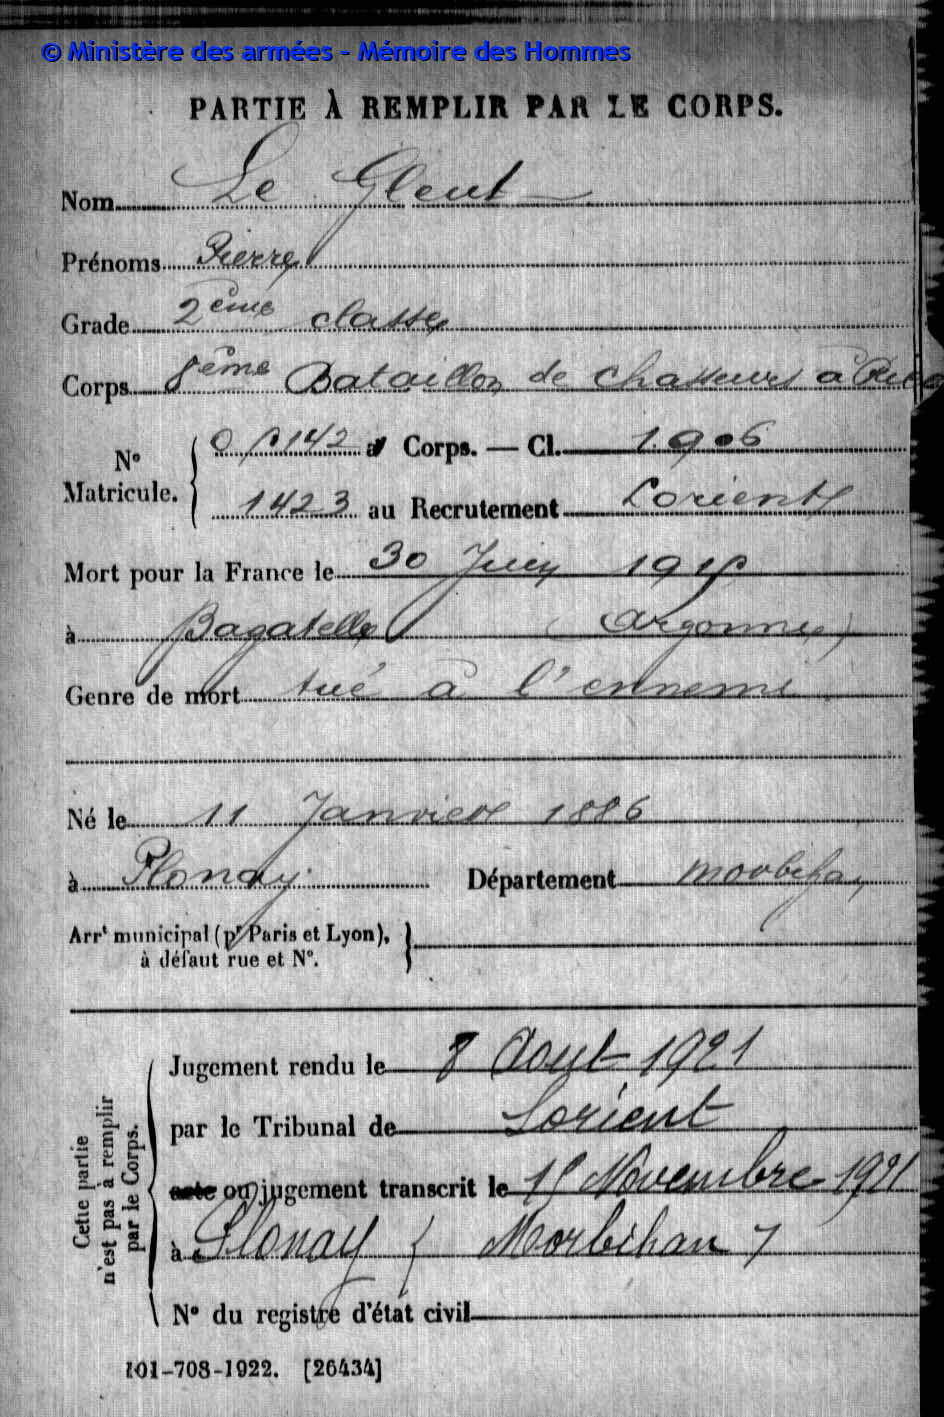 © Ministère des armées - Mémoire des Hommes
PARTIE À REMPLIR PAR LE CORPS.
Nom Le Gleut
Prénoms Pierre
Grade 2ème classe
Corps 8ème Bataillon de Chasseurs à Pied
N° Matricule. { 0/142 au Corps. — Cl. 1906
1423 au Recrutement Lorient
Mort pour la France le 30 Juin 1915
à Bagatelle (Argonne)
Genre de mort tué à l'ennemi
Né le 11 Janvier 1886
à Plouay Département Morbihan
Arrt municipal (pr Paris et Lyon), }
à défaut rue et N°.
Cette partie n'est pas à remplir par le Corps.
Jugement rendu le 8 Aout 1921
par le Tribunal de Lorient
acte ou jugement transcrit le 15 Novembre 1921
à Plouay (Morbihan)
N° du registre d'état civil
101-708-1922. [26434]